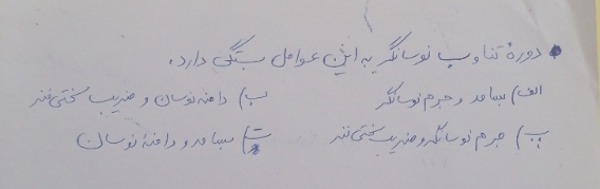 • دورهٔ تناوب نوسانگر به این عوامل بستگی دارد.
الف) بسامد و جرم نوسانگر ب) دامنه نوسان و ضریب سختی فنر
پ) جرم نوسانگر و ضریب سختی فنر ت) بسامد و دامنهٔ نوسان